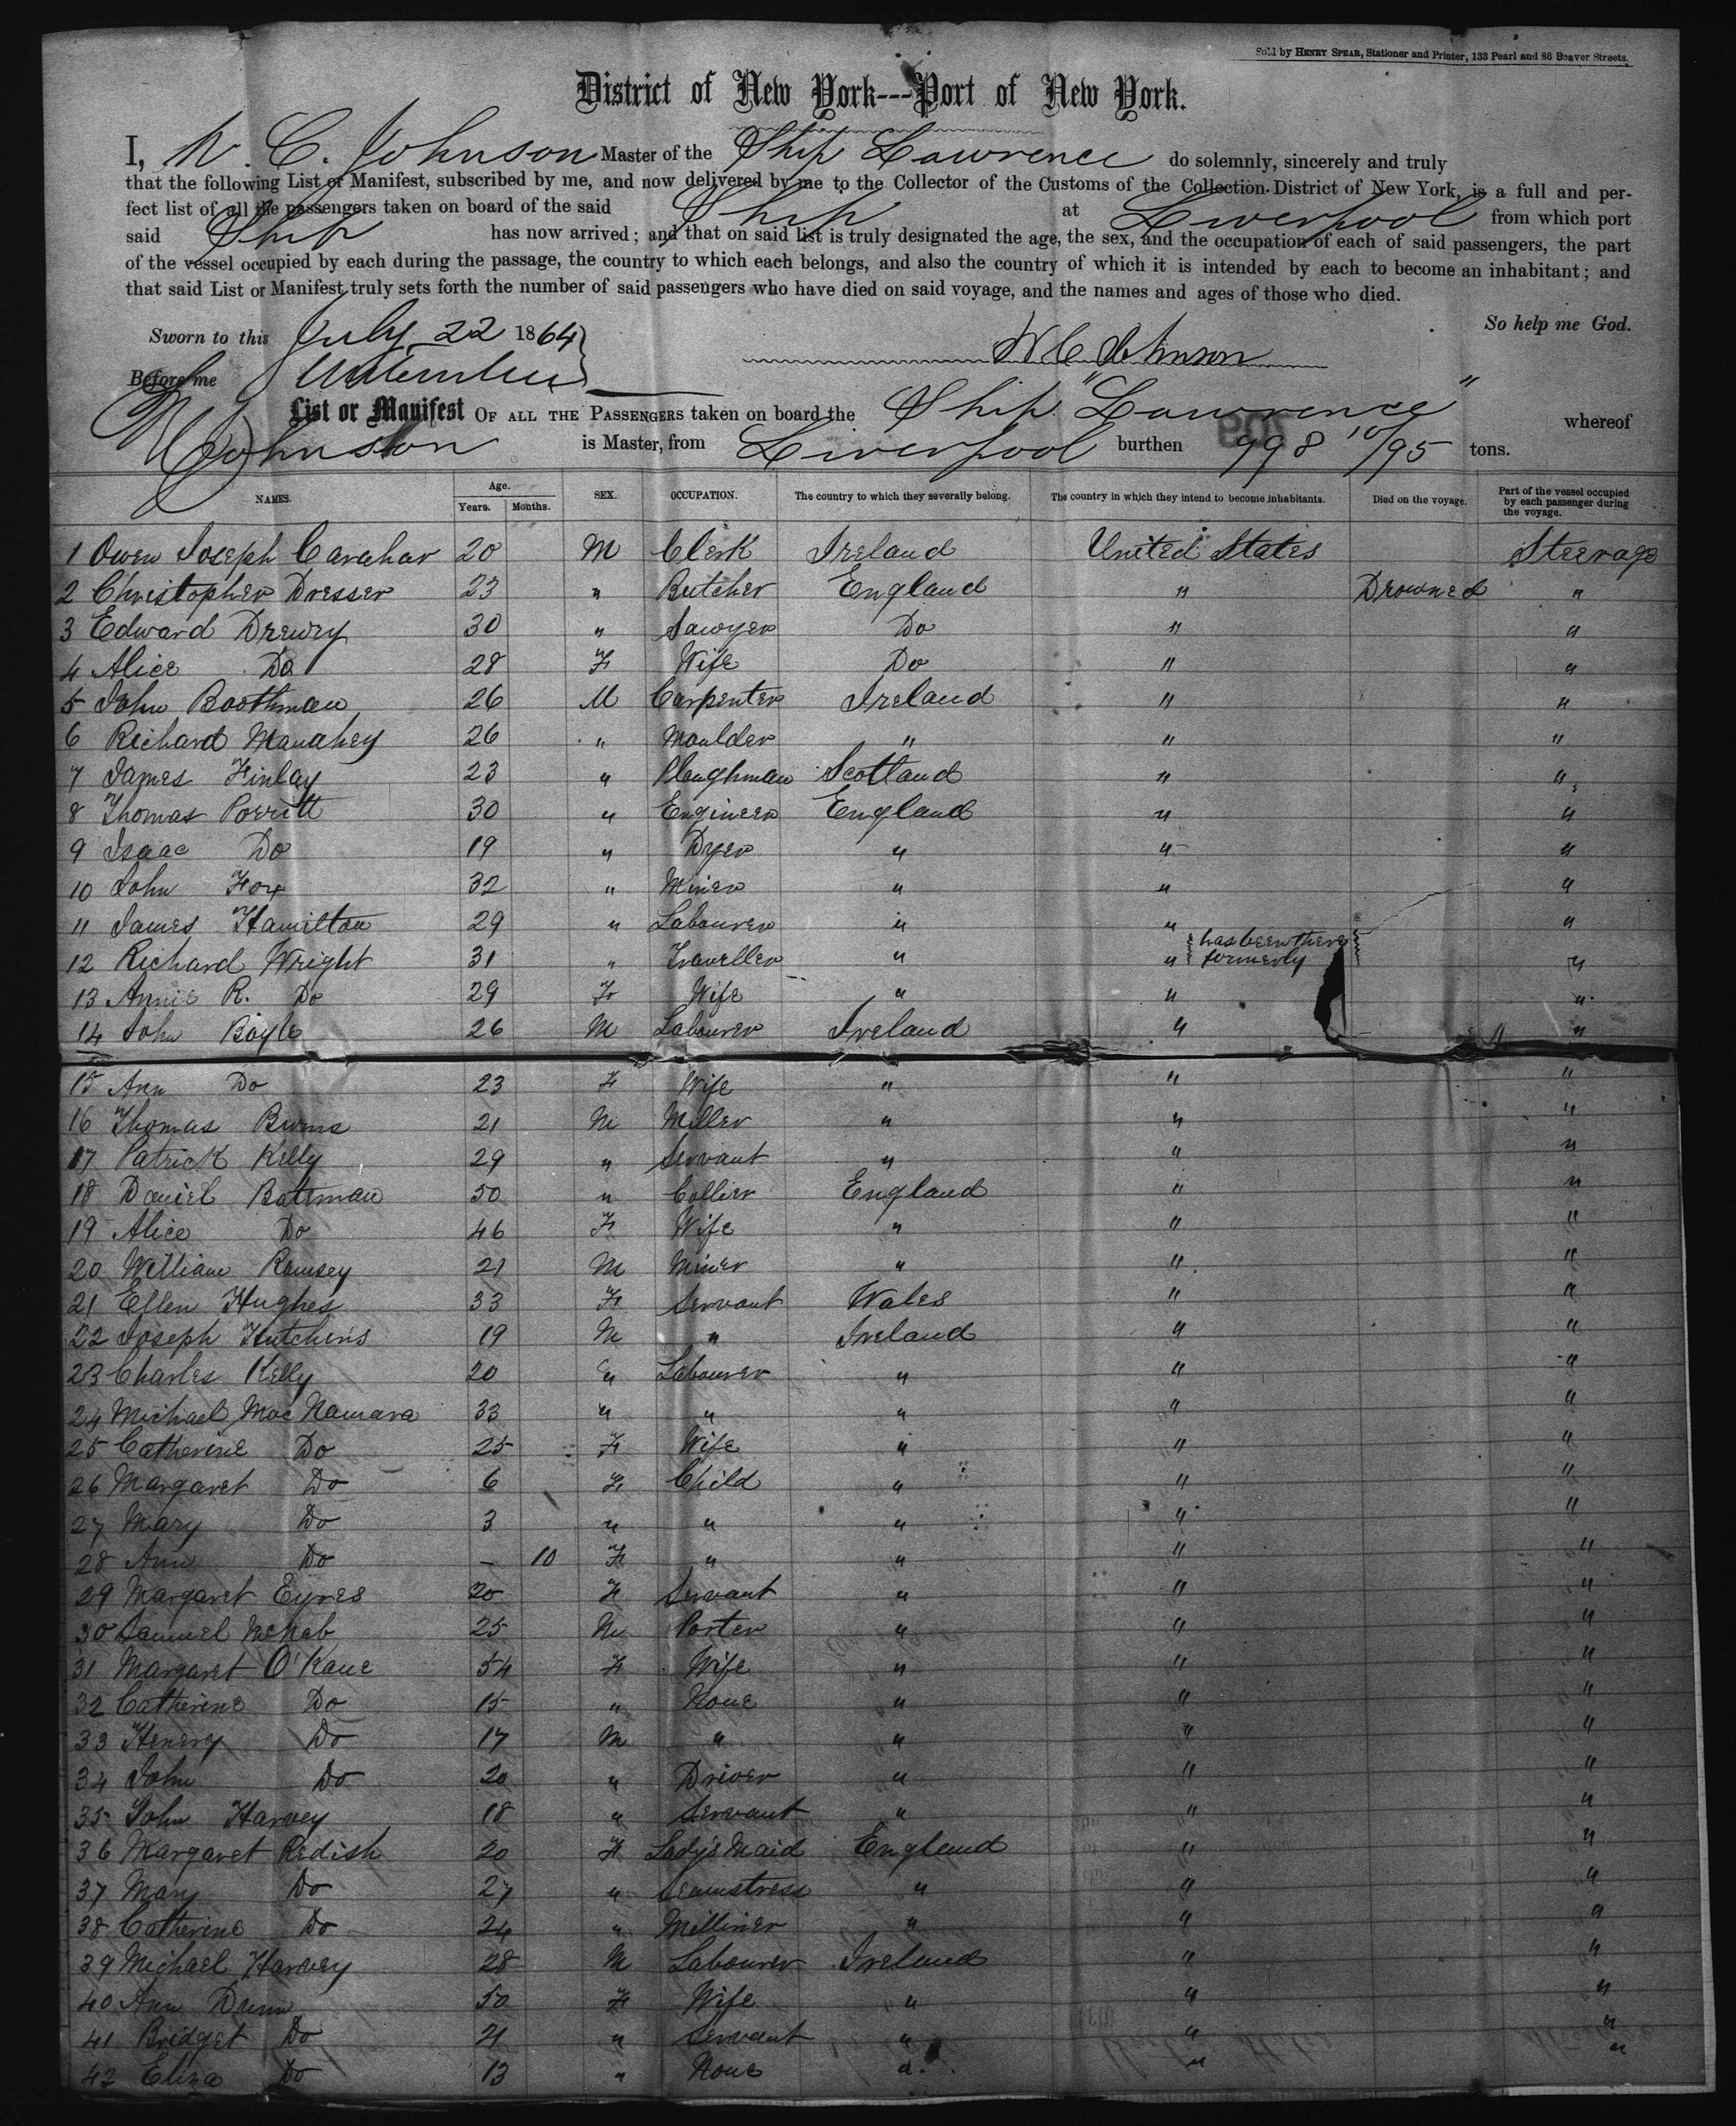 Sold by HENRY SPEAR, Stationer and Printer, 133 Pearl and 86 Beaver Streets.
District of New York---Port of New York.
I, W. C. Johnson Master of the Ship Lawrence do solemnly, sincerely and truly
that the following List or Manifest, subscribed by me, and now delivered by me to the Collector of the Customs of the Collection District of New York, is a full and per-
fect list of all the passengers taken on board of the said Ship at Liverpool from which port
said Ship has now arrived; and that on said list is truly designated the age, the sex, and the occupation of each of said passengers, the part
of the vessel occupied by each during the passage, the country to which each belongs, and also the country of which it is intended by each to become an inhabitant; and
that said List or Manifest truly sets forth the number of said passengers who have died on said voyage, and the names and ages of those who died.
Sworn to this July 22 1864 So help me God.
W C Johnson
Before me
List or Manifest OF ALL THE PASSENGERS taken on board the Ship "Lawrence" whereof
W C Johnson is Master, from Liverpool burthen 998 10/95 tons.
NAMES. Age. Years. Months. SEX. OCCUPATION. The country to which they severally belong. The country in which they intend to become inhabitants. Died on the voyage. Part of the vessel occupied by each passenger during the voyage.
1 Owen Joseph Carahar 20 M Clerk Ireland United States Steerage
2 Christopher Dresser 23 " Butcher England " Drowned "
3 Edward Drewry 30 " Sawyer Do " "
4 Alice Do 28 F Wife Do " "
5 John Boothman 26 M Carpenter Ireland " "
6 Richard Manahey 26 " Moulder " " "
7 James Finlay 23 " Ploughman Scotland " "
8 Thomas Porritt 30 " Engineer England " "
9 Isaac Do 19 " Dyer " " "
10 John Fox 32 " Miner " " "
11 James Hamilton 29 " Labourer " " "
12 Richard Wright 31 " Traveller " " { has been there formerly } "
13 Annie R. Do 29 F Wife " " "
14 John Boyle 26 M Labourer Ireland " "
15 Ann Do 23 F Wife " " "
16 Thomas Burns 21 M Miller " " "
17 Patrick Kelly 29 " Servant " " "
18 Daniel Bateman 50 " Collier England " "
19 Alice Do 46 F Wife " " "
20 William Ramsey 21 M Miner " " "
21 Ellen Hughes 33 F Servant Wales " "
22 Joseph Hutchins 19 M " Ireland " "
23 Charles Kelly 20 " Labourer " " "
24 Michael Mac Namara 33 " " " " "
25 Catherine Do 25 F Wife " " "
26 Margaret Do 6 F Child " " "
27 Mary Do 3 " " " " "
28 Ann Do - 10 F " " " "
29 Margaret Eyres 20 F Servant " " "
30 Samuel McNab 25 M Porter " " "
31 Margaret O'Kane 54 F Wife " " "
32 Catherine Do 15 " None " " "
33 Henery Do 17 M " " " "
34 John Do 20 " Driver " " "
35 John Harvey 18 " Servant " " "
36 Margaret Redish 20 F Lady's Maid England " "
37 Mary Do 27 " Seamstress " " "
38 Catherine Do 24 " Milliner " " "
39 Michael Harvey 28 M Labourer Ireland " "
40 Ann Dunn 50 F Wife " " "
41 Bridget Do 21 " Servant " " "
42 Eliza Do 13 " None " " "